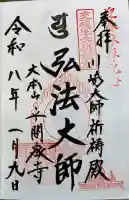 奉拝
川崎大師 祈祷殿
弘法大師
大本山 平間教寺
令和八年一月九日